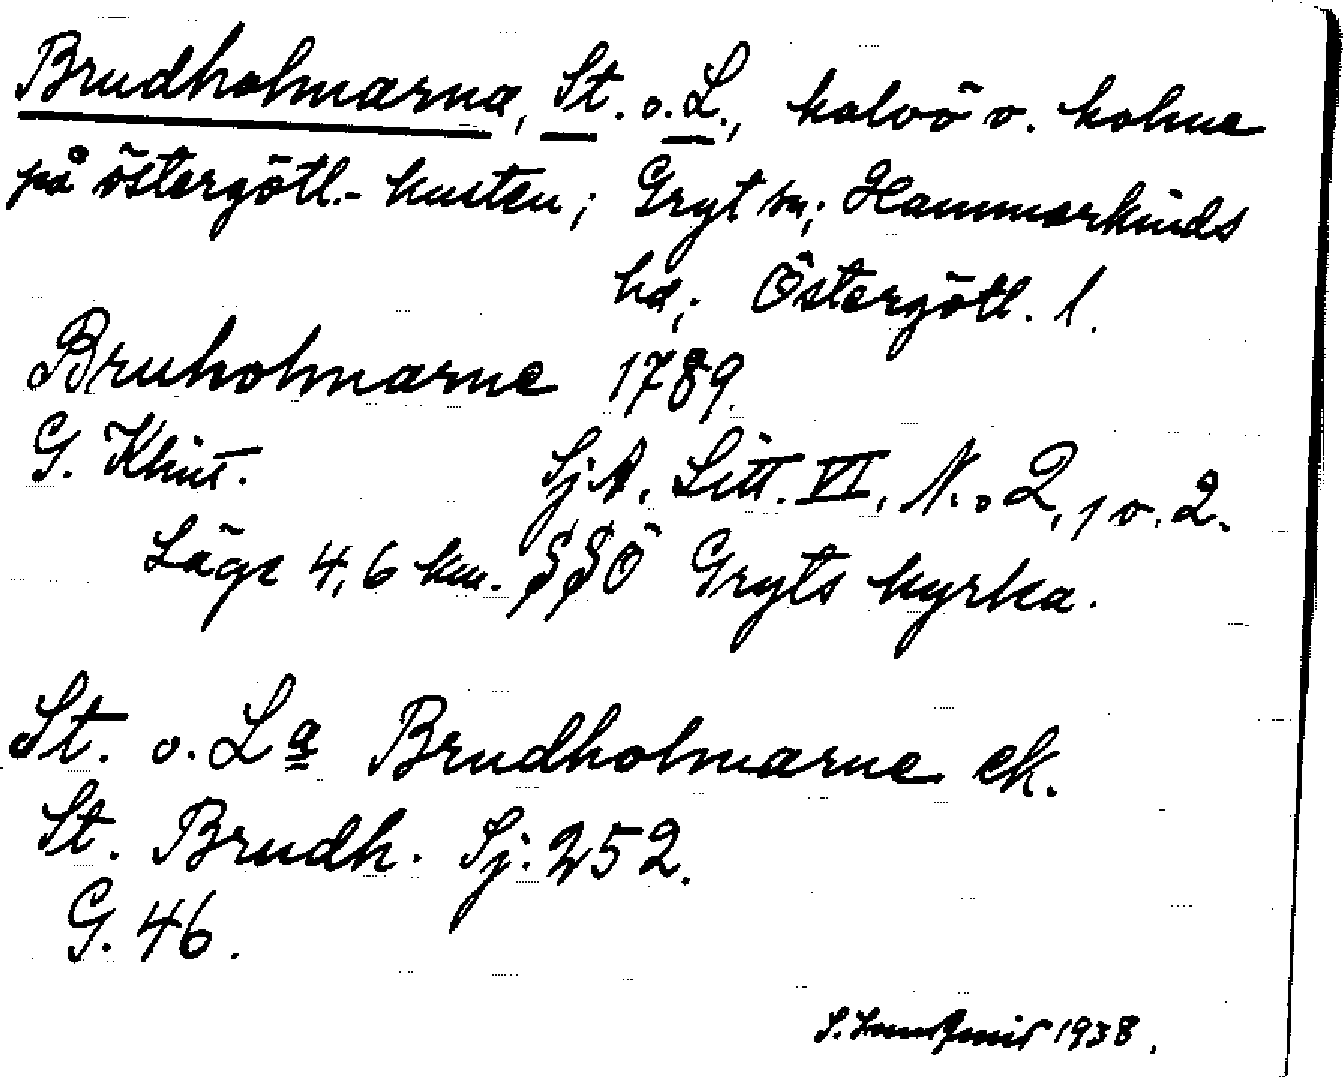 Brudholmarna, St. o. L., halvö o. holme
på östergötl.- kusten; Gryt sn; Hammarkinds
hd; Östergötl. l.
Bruholmarne 1789.
G. Klint. SjA. Litt. VI, N:o 2, 1 o. 2.
Läge 4,6 km. SSÖ Gryts kyrka.
St. o. La Brudholmarne ek.
St. Brudh. Sj. 252.
G. 46.
1938.